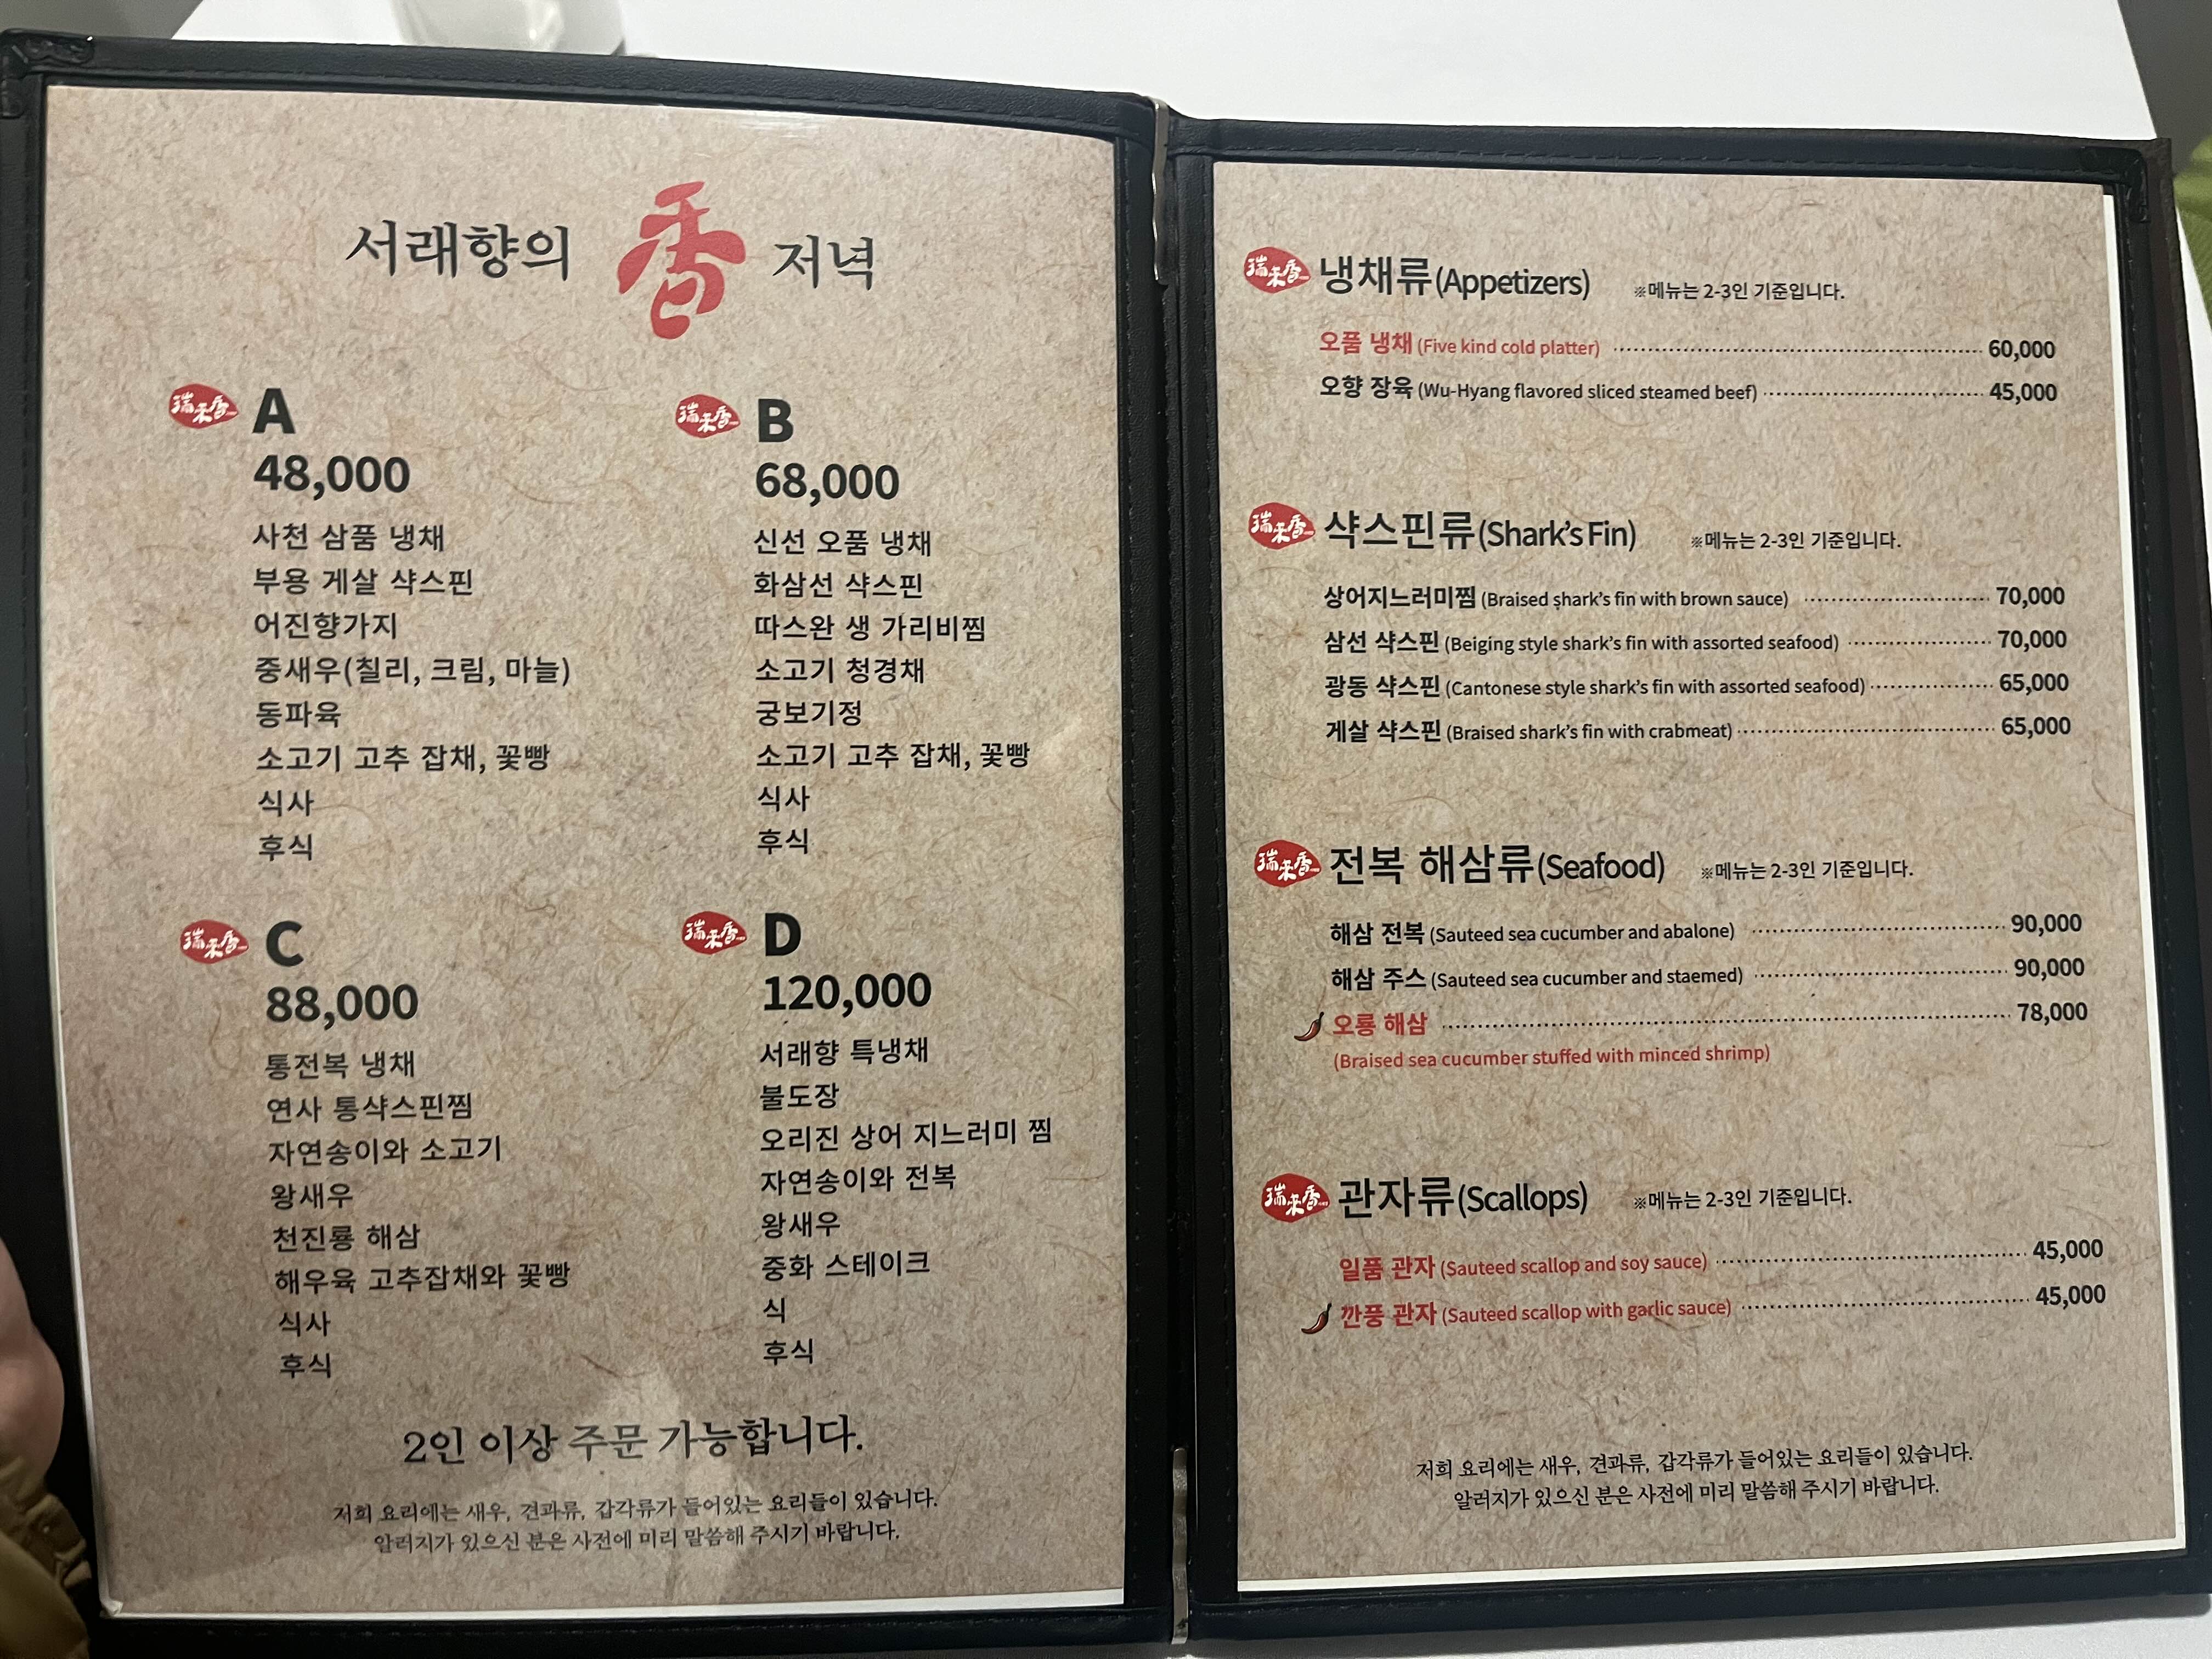 서래향의 香 저녁
瑞来香 A
48,000
사천 삼품 냉채
부용 게살 샥스핀
어진향가지
중새우(칠리, 크림, 마늘)
동파육
소고기 고추 잡채, 꽃빵
식사
후식
瑞来香 B
68,000
신선 오품 냉채
화삼선 샥스핀
따스완 생 가리비찜
소고기 청경채
궁보기정
소고기 고추 잡채, 꽃빵
식사
후식
瑞来香 C
88,000
통전복 냉채
연사 통샥스핀찜
자연송이와 소고기
왕새우
천진룡 해삼
해우육 고추잡채와 꽃빵
식사
후식
瑞来香 D
120,000
서래향 특냉채
불도장
오리진 상어 지느러미 찜
자연송이와 전복
왕새우
중화 스테이크
식
후식
2인 이상 주문 가능합니다.
저희 요리에는 새우, 견과류, 갑각류가 들어있는 요리들이 있습니다.
알러지가 있으신 분은 사전에 미리 말씀해 주시기 바랍니다.
瑞来香 냉채류(Appetizers) ※메뉴는 2-3인 기준입니다.
오품 냉채 (Five kind cold platter) 60,000
오향 장육 (Wu-Hyang flavored sliced steamed beef) 45,000
瑞来香 샥스핀류(Shark's Fin) ※메뉴는 2-3인 기준입니다.
상어지느러미찜 (Braised shark's fin with brown sauce) 70,000
삼선 샥스핀 (Beiging style shark's fin with assorted seafood) 70,000
광동 샥스핀 (Cantonese style shark's fin with assorted seafood) 65,000
게살 샥스핀 (Braised shark's fin with crabmeat) 65,000
瑞来香 전복 해삼류(Seafood) ※메뉴는 2-3인 기준입니다.
해삼 전복 (Sauteed sea cucumber and abalone) 90,000
해삼 주스 (Sauteed sea cucumber and staemed) 90,000
오룡 해삼 78,000
(Braised sea cucumber stuffed with minced shrimp)
瑞来香 관자류(Scallops) ※메뉴는 2-3인 기준입니다.
일품 관자 (Sauteed scallop and soy sauce) 45,000
깐풍 관자 (Sauteed scallop with garlic sauce) 45,000
저희 요리에는 새우, 견과류, 갑각류가 들어있는 요리들이 있습니다.
알러지가 있으신 분은 사전에 미리 말씀해 주시기 바랍니다.